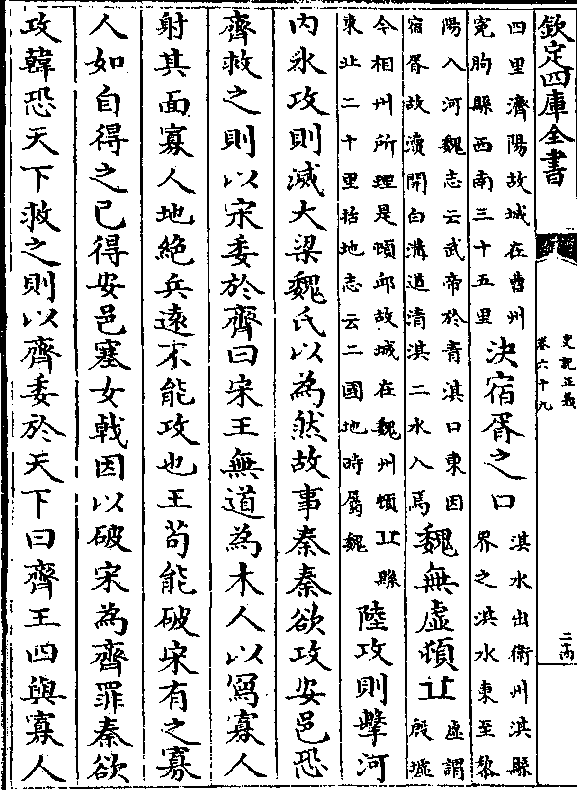 欽定四庫全書
史記正義
卷六十九
四里濟陽故城在曹州
寃朐縣西南三十五里
決宿胥之口
淇水出衛州淇縣
界之淇水東至黎
陽入河魏志云武帝於青淇口東因
宿胥故瀆開白溝道清淇二水入焉
魏無虛頓丘
虛謂
殷墟
今相州所理是頓邱故城在魏州頓丘縣
東北二十里括地志云二國地時屬魏
陸攻則擊河
內水攻則滅大梁魏氏以為然故事秦秦欲攻安邑恐
齊救之則以宋委於齊曰宋王無道為木人以寫寡人
射其面寡人地絶兵遠不能攻也王苟能破宋有之寡
人如自得之已得安邑塞女戟因以破宋為齊罪秦欲
攻韓恐天下救之則以齊委於天下曰齊王四與寡人